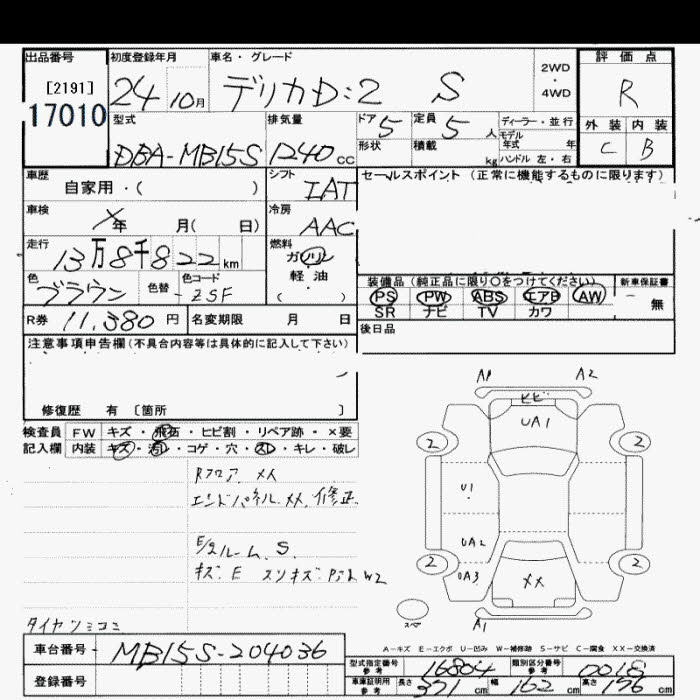 出品番号 初度登録年月 車名・グレード 評価点
[2191] 24 10月 デリカD:2 S 2WD・4WD R
17010
型式 排気量 ドア 5 定員 5人 ディーラー・並行 外装 内装
DBA-MB15S 1240cc 形状 積載 kg モデル年式 年 C B
ハンドル 左・右
車歴 自家用・( ) シフト IAT セールスポイント(正常に機能するものに限ります)
車検 年 月( 日) 冷房 AAC
走行 13万8千822km 燃料 ガソリン
軽・油
( )
色 ブラウン 色替 - 色コード ZSF 装備品(純正品に限り○をつけてください) 新車保証書
PS PW ABS エアB AW - 無
SR ナビ TV カワ
R券 11,380円 名変期限 月 日 後日品
注意事項申告欄(不具合内容等は具体的に記入して下さい)
修復歴 有 [箇所 ]
検査員 FW キズ・飛石・ヒビ割・リペア跡・×要
記入欄 内装 キズ・汚レ・コゲ・穴・スレ・キレ・破レ
Rフロア XX
エンドパネル XX. 修正
E/gルーム S.
キズ E スリキズ. W2
タイヤ
A1 A2
ヒビ
UA1
2 2
U1
UA2
2 2
UA3
XX
スペア A1
A-キズ E-エクボ U-凹み W-補修跡 S-サビ C-腐食 XX-交換済
車台番号 - MB15S-204036
登録番号
型式指定番号 参考 16804 類別区分番号 参考 0018
車庫証明用 参考 長さ 371cm 幅 162cm 高さ 156cm